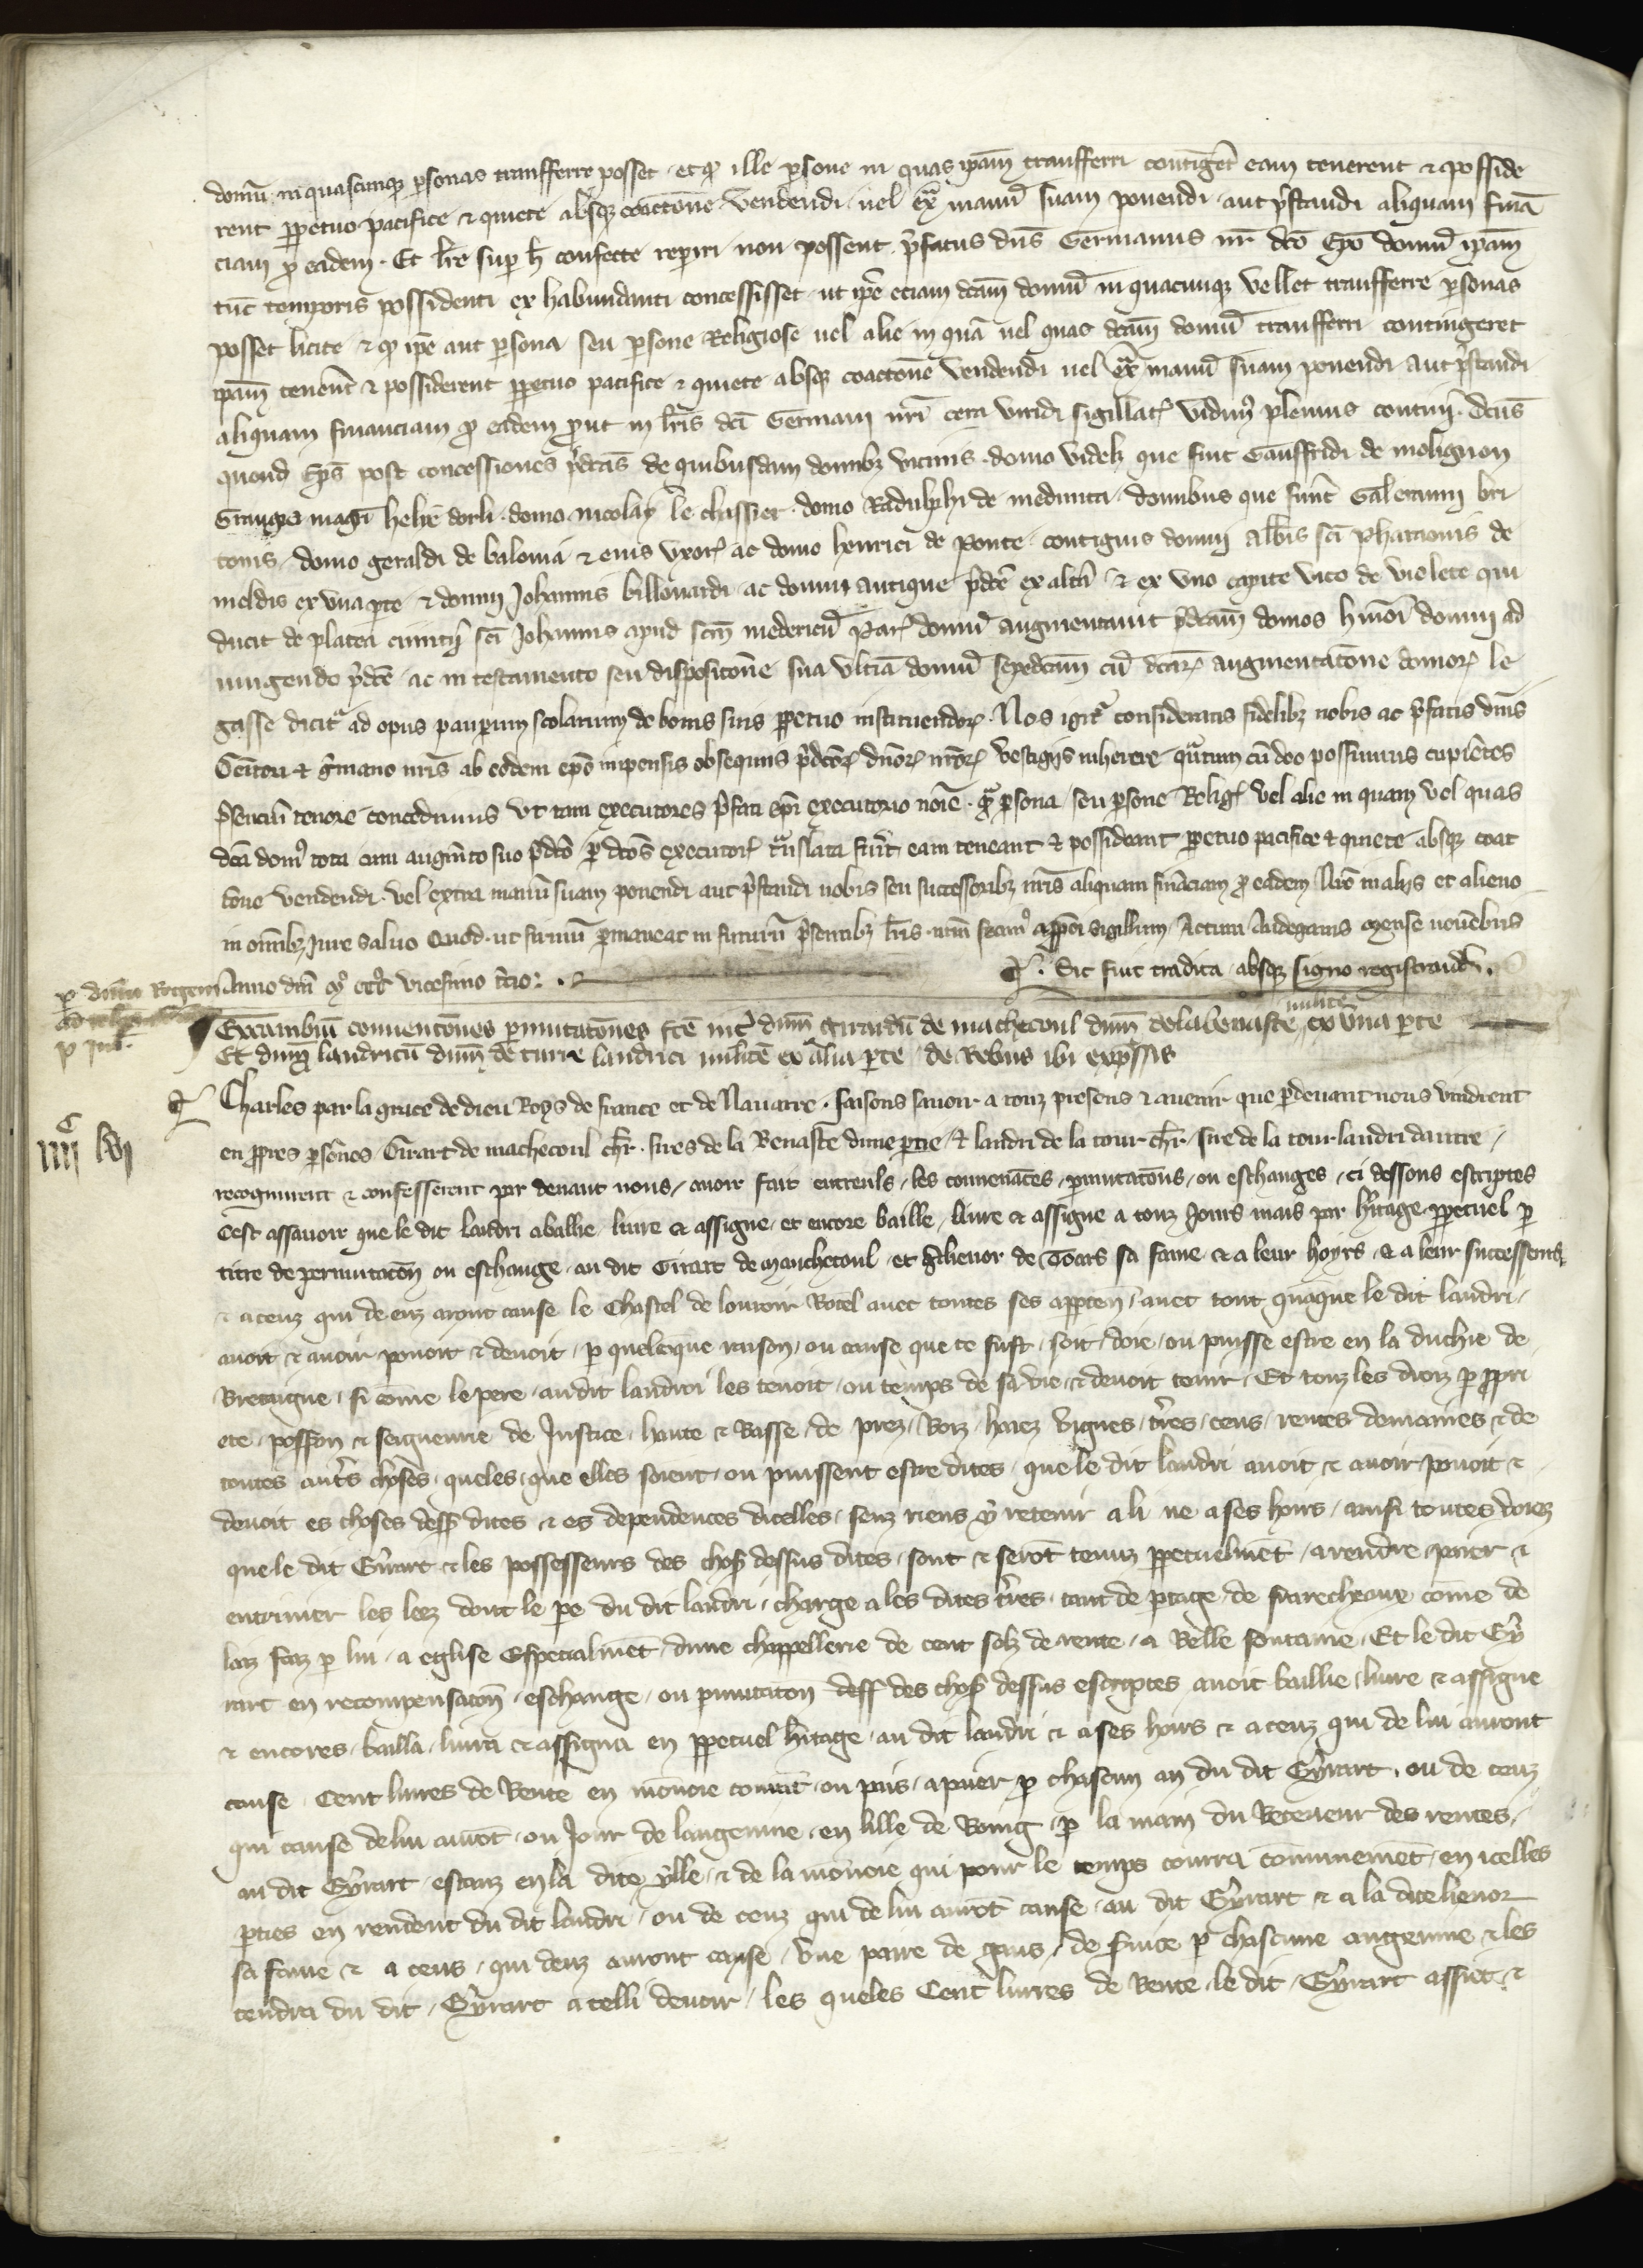 domū in quascunq personas transfferre posset et q ille persone in quas ipam transfferri contigerit eam tenerent & posside
rent perpetuo pacifice & quiete absq coactone vendendi uel ext manū suam ponendi aut prestandi aliquam finā
ciam pro eadem. Et lre sup h confecte reperiri non possent prefatus dns Germanus nr dco Epo domū ipam
tūc temporis possidenti ex habundanti concessisset ut ipe eciam dcam domū in quacunq vellet transfferre personas
posset licite & q ipe aut persona seu persone Religiose uel alie in quā uel quas dcam domū transfferri contingeret
ipam tenerent & possiderent perpetuo pacifice & quiete absq coactone vendendi uel ext manū suam ponendi aut prestandi
aliquam financiam pro eadem prout in lris dci Germani nri cera viridi sigillat vidim plenius contineri. dcus
quond Eps post concessiones predcas de quibusdam domibz vicinis domo videlz que fuit Gauffridi de molignon
Grangia magri helie dorli domo nicolay le chassier domo Radulphi de medunta domibus que fuerunt Galeranni bri
tonis domo geraldi de balonia & eius vxor ac domo henrici de Ponte contiguis domui abbis sci Pharaonis de
meldis ex vna parte & domui Johannis billouardi ac domui antique predce ex altera & ex vno capite vico de violete qui
ducit de platea cimiterij sci Johannis apud scm medericū Par domū augmentauit predcam domos hmoi domui ad
iungendo predce ac in testamento seu dispositone sua vltima domū sepedcam cū dcar augmentatone domor le
gasse dicit ad opus pauperum scolarium de bonis suis perpetuo instituendor. Nos igit consideratis fidelibz nobis ac prefatis dnis
Genitori & Germano nris ab eodem epo impensis obsequiis predcor dnor nror vestigijs inherere quantum cū deo possumus cupientes
presenciū tenore concedimus vt tam executores prefati epi executorio noie q persona seu persone Relig vel alie in quam vel quas
dca dom tota cum augmto suo predco per dcos executor translata fuerit eam teneant & possideant perpetuo pacifice & quiete absq coac
tone vendendi vel extra manū suam ponendi aut prestandi nobis seu successoribz nris aliquam financiam pro eadem Nro in alijs et alieno
in omibz Jure saluo Quod ut firmū permaneat in futurū presentibz lris nrm fecim apponi sigillum Actum Andegauis mense nouēbris
Anno dni m ccc vicesimo tercio. Sic fuit tradita absq signo registrand.
per dnm Regem
p Jul.
Excambiū conuentones permutatones fce int dnm Girardū de machecoul dnm delabenaste militē ex vna parte
Et dnm landricū dnm de turre landrici militē ex alia parte de Rebus ibi expressis
iiii c lvi
Charles par la grace de dieu Roys de france et de Nauarre. faisons sauoir a touz presens & auenir que pardeuant nous vindrent
en propres persones Girart de machecoul chr. sires de la Benaste dune partie & landri de la tour chr. sire de la tour landri dautre
recognurent & confesserent par deuant nous auoir fait entreuls les conuenāces permutatōns ou eschanges ci dessous escriptes
Cest assauoir que le dit landri a baillie liure & assigne et encore baille liure & assigne a touz Jours mais par heritage perpetuel par
titre de permutatōn ou eschange au dit Girart de Machecoul et Alienor de Toars sa fame & a leur hoyrs & a leur successeurs
& a ceuz qui de euz aront cause le Chastel de louuoir Rotel auec toutes ses apparten auec tout quāque le dit landri
auoit & auoir pouoit & deuoit par quelcque raison ou cause que ce fust soit doie ou puisse estre en la duchie de
Bretaigne si cōme le pere au dit landri les tenoit ou temps de sa vie & deuoit tenir Et touz les droiz par propri
ete possōn & seigneurie de Justice haute & Basse de prez Boiz haiez vignes terres cens rentes domaines & de
toutes autrs choses queles que elles soient ou puissent estre dites que le dit landri auoit & auoir pouoit &
deuoit es choses dess dites & es dependences dicelles senz riens y retenir a li ne a ses hoirs ainsi toutes voiez
que le dit Gyrart & les possesseurs des chos dessus dites sont & serōt tenuz perpetuelmēt a rendre paier &
enteriner les leez dont le pe du dit landri charge a les dites terres tant de partage de frarecheaux cōme de
laiz faiz par lui a eglise Especialmēt dune chappellerie de cent solz de rente a Belle fontaine Et le dit Gy
rart en recompensatōn eschange ou permutatōn deff des chos dessus escriptes auoit baillie liure & assigne
& encores bailla liura & assigna en perpetuel heritage au dit landri & a ses hoirs & a ceuz qui de lui auront
cause Cent liures de Rente en mōnoie courāt ou pais a paier par chascun an du dit Gyrart ou de ceuz
qui cause de lui aurōt ou Jour de langeuine en lille de Boing par la main du Receueur des rentes
au dit Gyrart estanz en la dite ylle & de la mōnoie qui pour le temps courra cōmunemēt en icelles
parties en rendent du dit landri ou de ceuz qui de lui aurōt cause au dit Gyrart & a la dite lienor
sa fame & a ceus qui deuz auront cause vne paire de ganz de seruice par chascune angeuine & les
tendra du dit Gyrart a celli deuoir les queles Cent liures de Rente le dit Gyrart assiet &